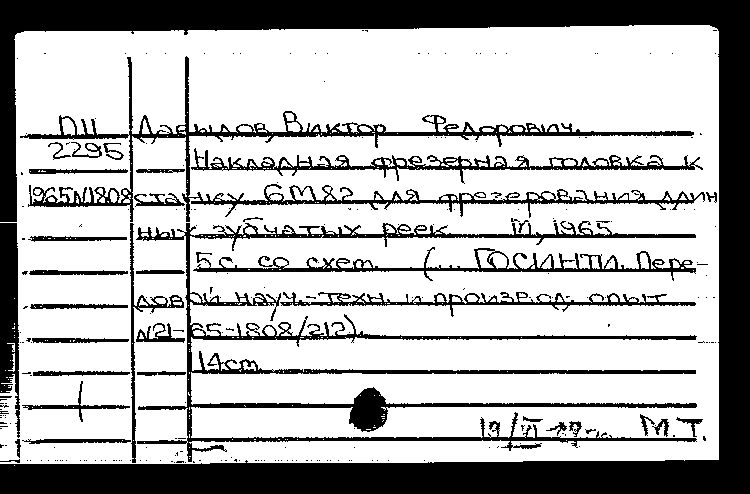 ПII Давыдов, Виктор Федорович.
2295 Накладная фрезерная головка к
1965N1808 станку 6М82 для фрезерования длин
ных зубчатых реек М, 1965.
5 с. со схем. (... ГОСИНТИ. Пере-
довой науч.-техн. и производ. опыт
N21-65-1808/212).
14 см
19/VI М.Т.